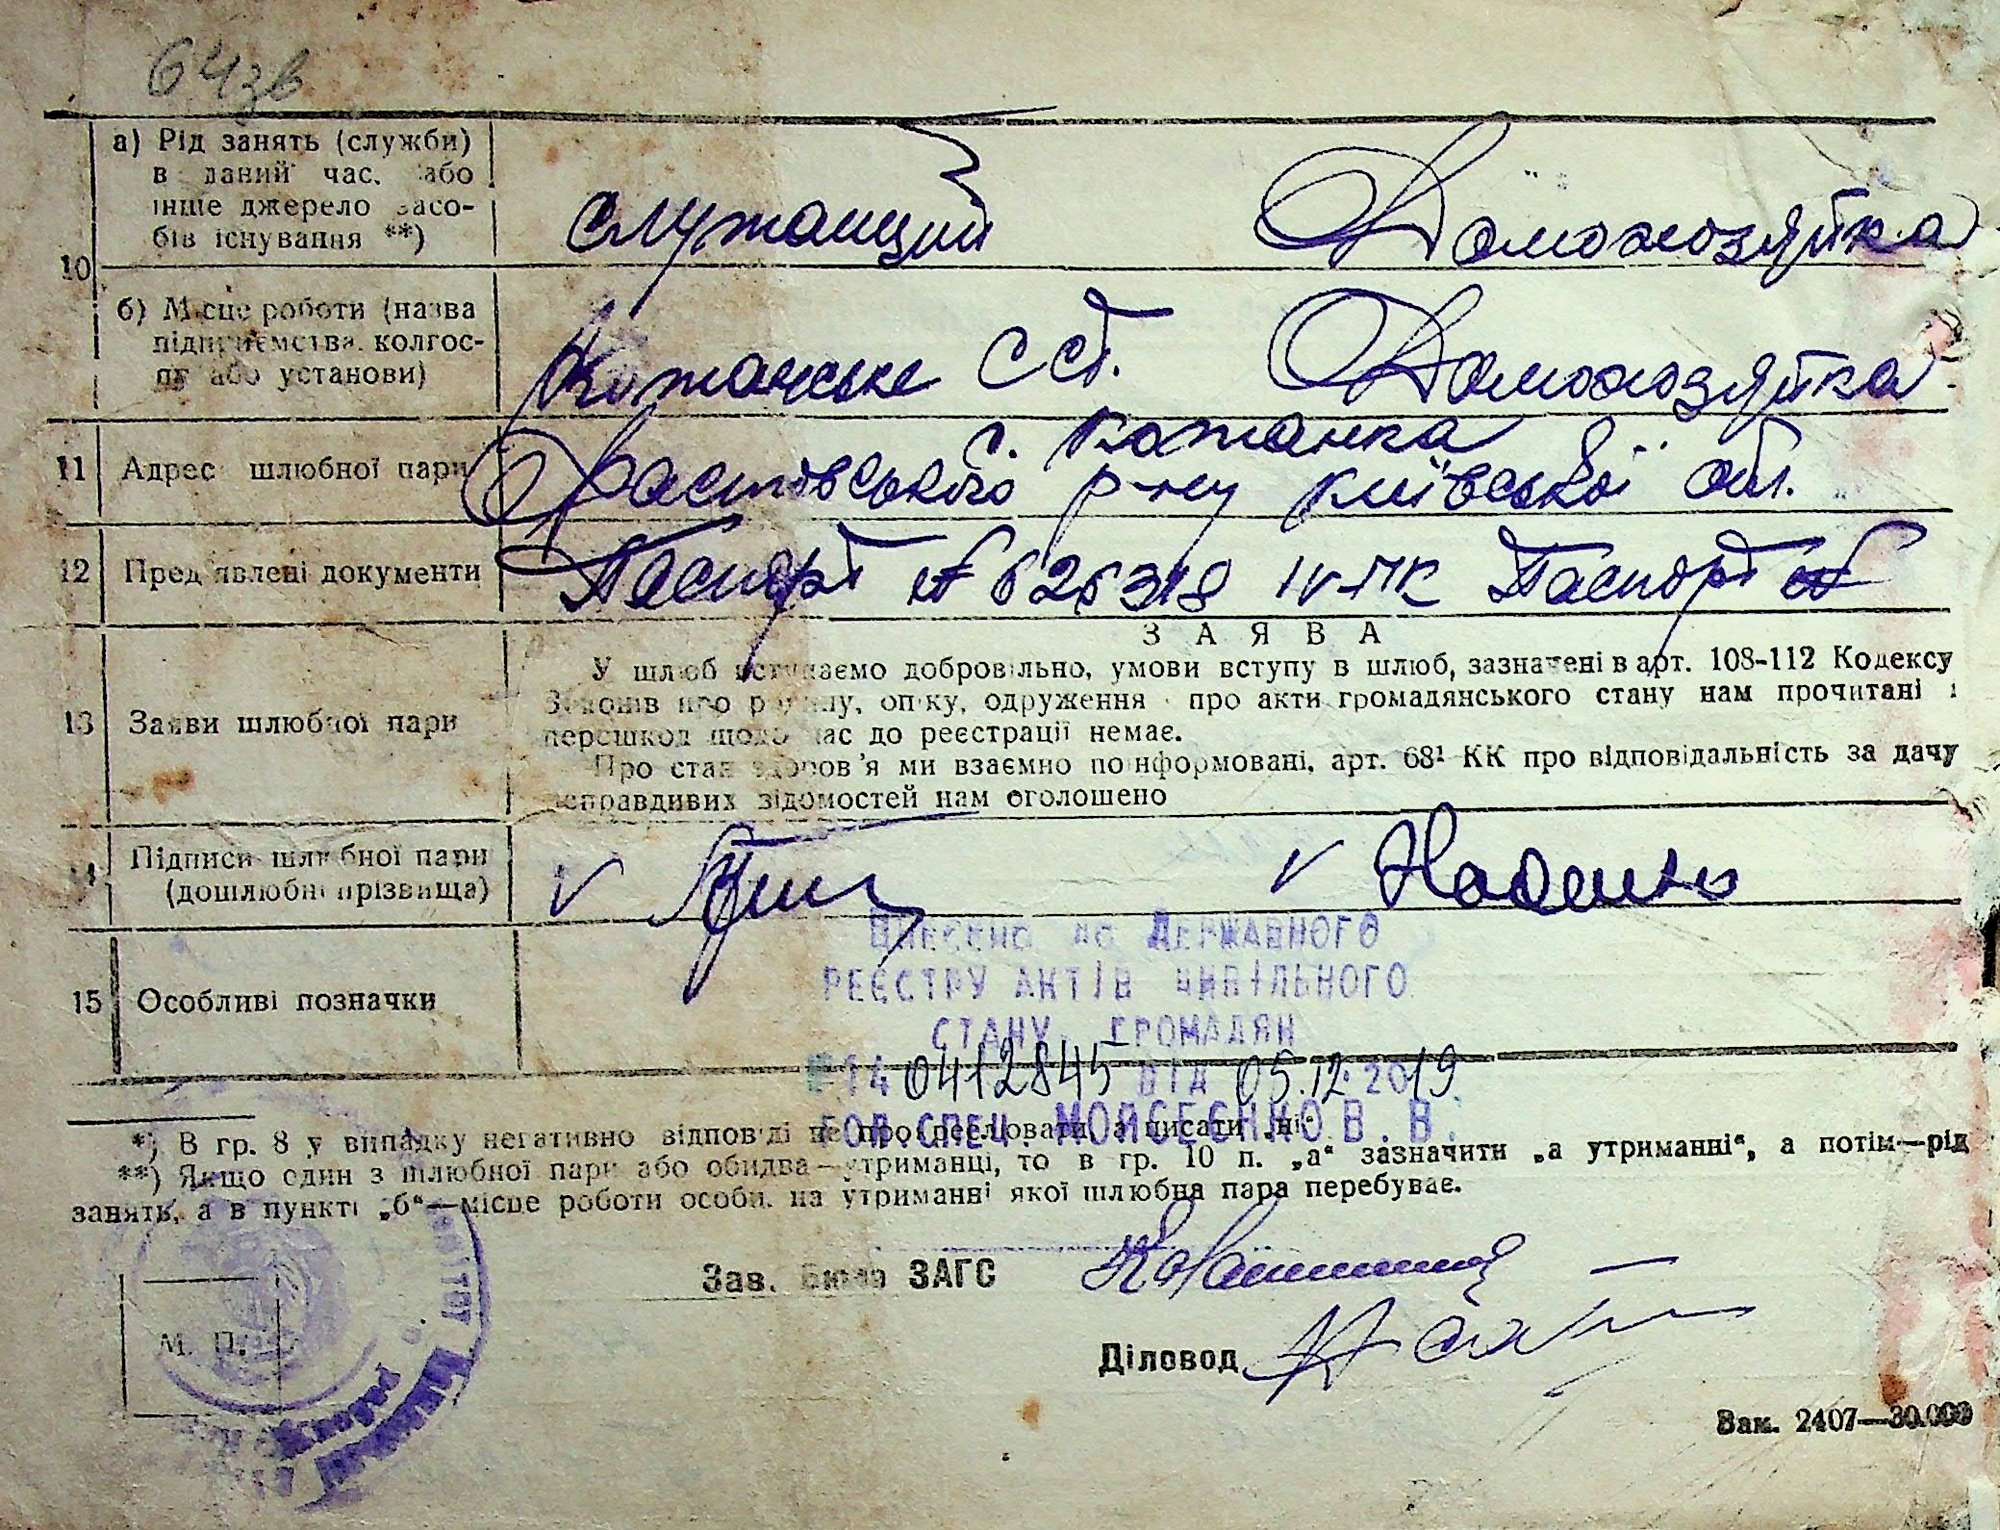 64зв
10
а) Рід занять (служби)
в даний час, або
інше джерело засо-
бів існування **)
служащий Домохозяйка
б) Місце роботи (назва
підприємства, колгос-
пу або установи)
Кожанське ССТ. Домохозяйка
11 Адрес шлюбної пари
с. Кожанка
Фастовського р-ну Київської обл.
12 Пред'явлені документи Паспорт № 626318 IV-ПК Паспорт №
13 Заяви шлюбної пари
ЗАЯВА
У шлюб вступаємо добровільно, умови вступу в шлюб, зазначені в арт. 108-112 Кодексу
Законів про родину, опіку, одруження і про акти громадянського стану нам прочитані і
перешкод щодо нас до реєстрації немає.
Про стан здоров'я ми взаємно поінформовані, арт. 68¹ КК про відповідальність за дачу
неправдивих відомостей нам оголошено
14 Підписи шлюбної пари
(дошлюбні прізвища)
V V
15 Особливі позначки
Внесено до Державного
реєстру актів цивільного
стану громадян
14 0412845 від 05.12.2019
гол.спец. Мойсеєнко В.В.
*) В гр. 8 у випадку негативно відповіді не про писати „ні“
**) Якщо один з шлюбної пари або обидва—утриманці, то в гр. 10 п. „а“ зазначити „а утриманні“, а потім—рід
занять, а в пункті „б“—місце роботи особи, на утриманні якої шлюбна пара перебуває.
Зав. Бюро ЗАГС
М. П.
Діловод
Зам. 2407—30.000